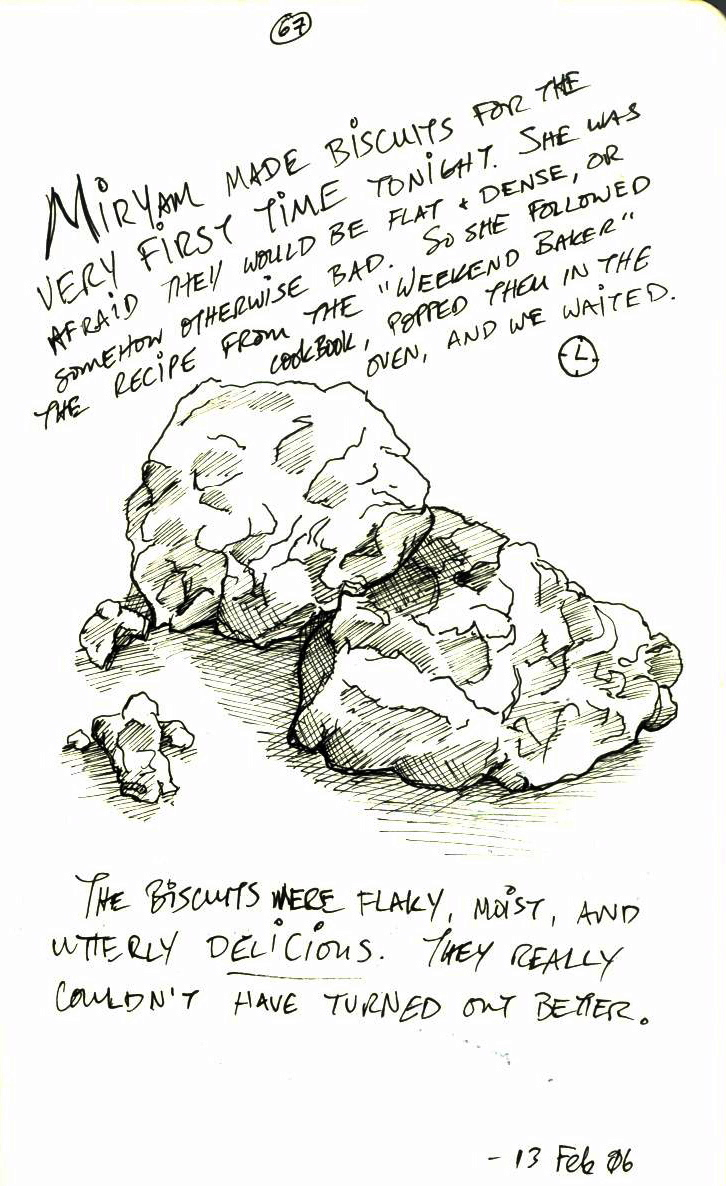 67
MiRYAM MADE BiSCUiTS FOR THE
VERY FiRST TiME TONiGHT. SHE WAS
AFRAiD THEY WOULD BE FLAT + DENSE, OR
SOMEHOW OTHERWiSE BAD. SO SHE FOLLOWED
THE RECiPE FROM THE "WEEKEND BAKER"
COOKBOOK, POPPED THEM IN THE
OVEN, AND WE WAiTED.
THE BiSCUiTS WERE FLAKY, MOiST, AND
UTTERLY DELiCiOUS. THEY REALLY
COULDN'T HAVE TURNED OUT BETTER.
- 13 Feb 06